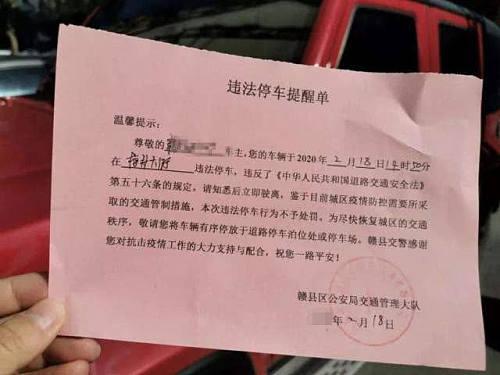 违法停车提醒单
温馨提示：
尊敬的 车主，您的车辆于2020年2月18日14时50分
在 违法停车，违反了《中华人民共和国道路交通安全法》
第五十六条的规定，请知悉后立即驶离，鉴于目前城区疫情防控需要所采
取的交通管制措施，本次违法停车行为不予处罚。为尽快恢复城区的交通
秩序，敬请您将车辆有序停放于道路停车泊位处或停车场。赣县交警感谢
您对抗击疫情工作的大力支持与配合，祝您一路平安！
赣县区公安局交通管理大队
年2月18日